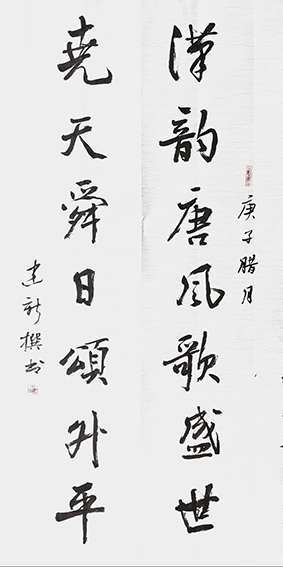 庚子腊月
漢韵唐风歌盛世
堯天舜日頌升平
建新撰书